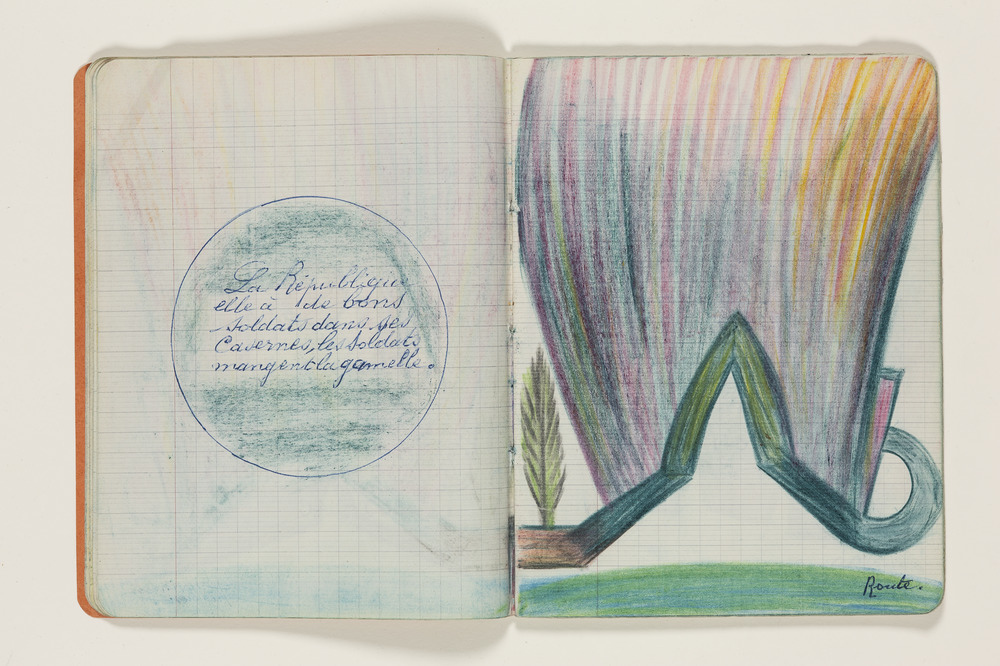 La République
elle à de bons
soldats dans ses
Casernes, les soldats
mangent la gamelle.
Route.